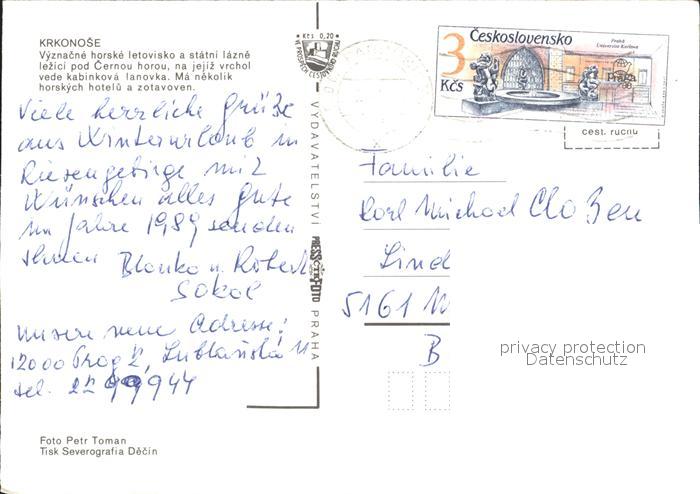 KRKONOŠE
Význačné horské letovisko a státní lázně
ležící pod Černou horou, na jejíž vrchol
vede kabinková lanovka. Má několik
horských hotelů a zotavoven.
Viele herzliche Grüße
aus Winterurlaub im
Riesengebirge mit
Wünschen alles Gute
im Jahre 1989 senden
Ihnen Blanka u. Robert
Sokol
unsere neue Adresse:
12000 Prag 2, Lublaňská 11
tel. 22 99 944
Foto Petr Toman
Tisk Severografia Děčín
Kčs 0,20
VYDAVATELSTVÍ PRESSFOTO PRAHA
Československo
3
Kčs
Praha
Universita Karlova
praga
88
cest. ruchu
Familie
Karl Michael Cloßen
Lind
5161
B
privacy protection
Datenschutz